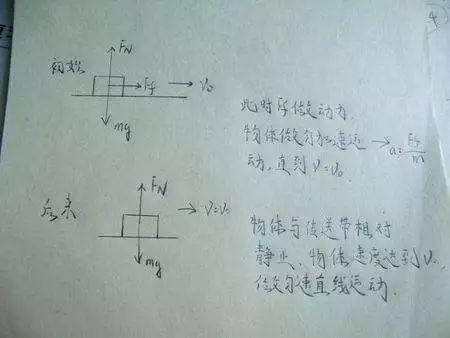 4
FN
初始
Ff
V₀
mg
此时Ff做动力.
物体做匀加速运 → a=Ff/m
动,直到V=V₀.
FN
后来
V=V₀
mg
物体与传送带相对
静止、物体速度达到V₀.
做匀速直线运动.